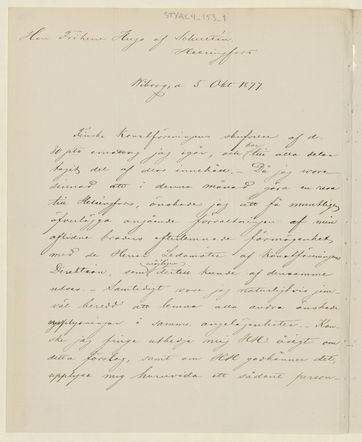 STYAC4_153_1
Herr Friherre Hugo af Schultén,
Helsingfors
Wiborg, d 5 Okt. 1877
Finska Konstföreningens skrifvelse af d.
10 pto emottog jag igår, och har till alla delar
tagit del af dess innehåll. – Då jag vore
sinnad att i denna månad göra en resa
till Helsingfors, önskade jag att få muntligen
öfverlägga angående förvaltningen af min
aflidne broders efterlemnade förmögenhet,
med de Herrar Ledamöter af Konstföreningens
Direktion, som dertill kunde af densamma
utses. – Samtidigt vore jag naturligtvis
väl beredd att lemna alla andra önskade
upplysningar i samma angelägenheter. – Kan-
ske jag finge utbedja mig HH åsigt om
detta förslag, samt om HH godkänner det,
upplysa mig huruvida ett sådant person-